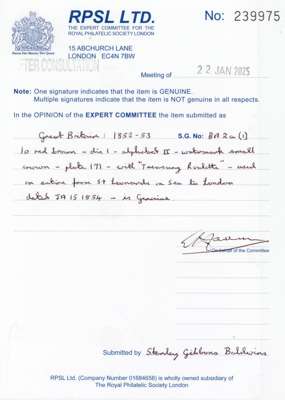 RPSL LTD.
THE EXPERT COMMITTEE FOR THE
ROYAL PHILATELIC SOCIETY LONDON
No: 239975
15 ABCHURCH LANE
LONDON EC4N 7BW
TER CONSULTATION
Meeting of 22 JAN 2025
Note: One signature indicates that the item is GENUINE.
Multiple signatures indicate that the item is NOT genuine in all respects.
In the OPINION of the EXPERT COMMITTEE the item submitted as
Great Britain: 1852-53 S.G. No: BA2a(1)
1d red brown - die I - alphabet II - watermark small
crown - plate 171 - with "Treasury Roulette" - used
on entire from St Leonards on Sea to London
dated JA 15 1854 - is Genuine
On behalf of the Committee
Submitted by Stanley Gibbons Baldwins
RPSL Ltd. (Company Number 01684658) is wholly owned subsidiary of
The Royal Philatelic Society London